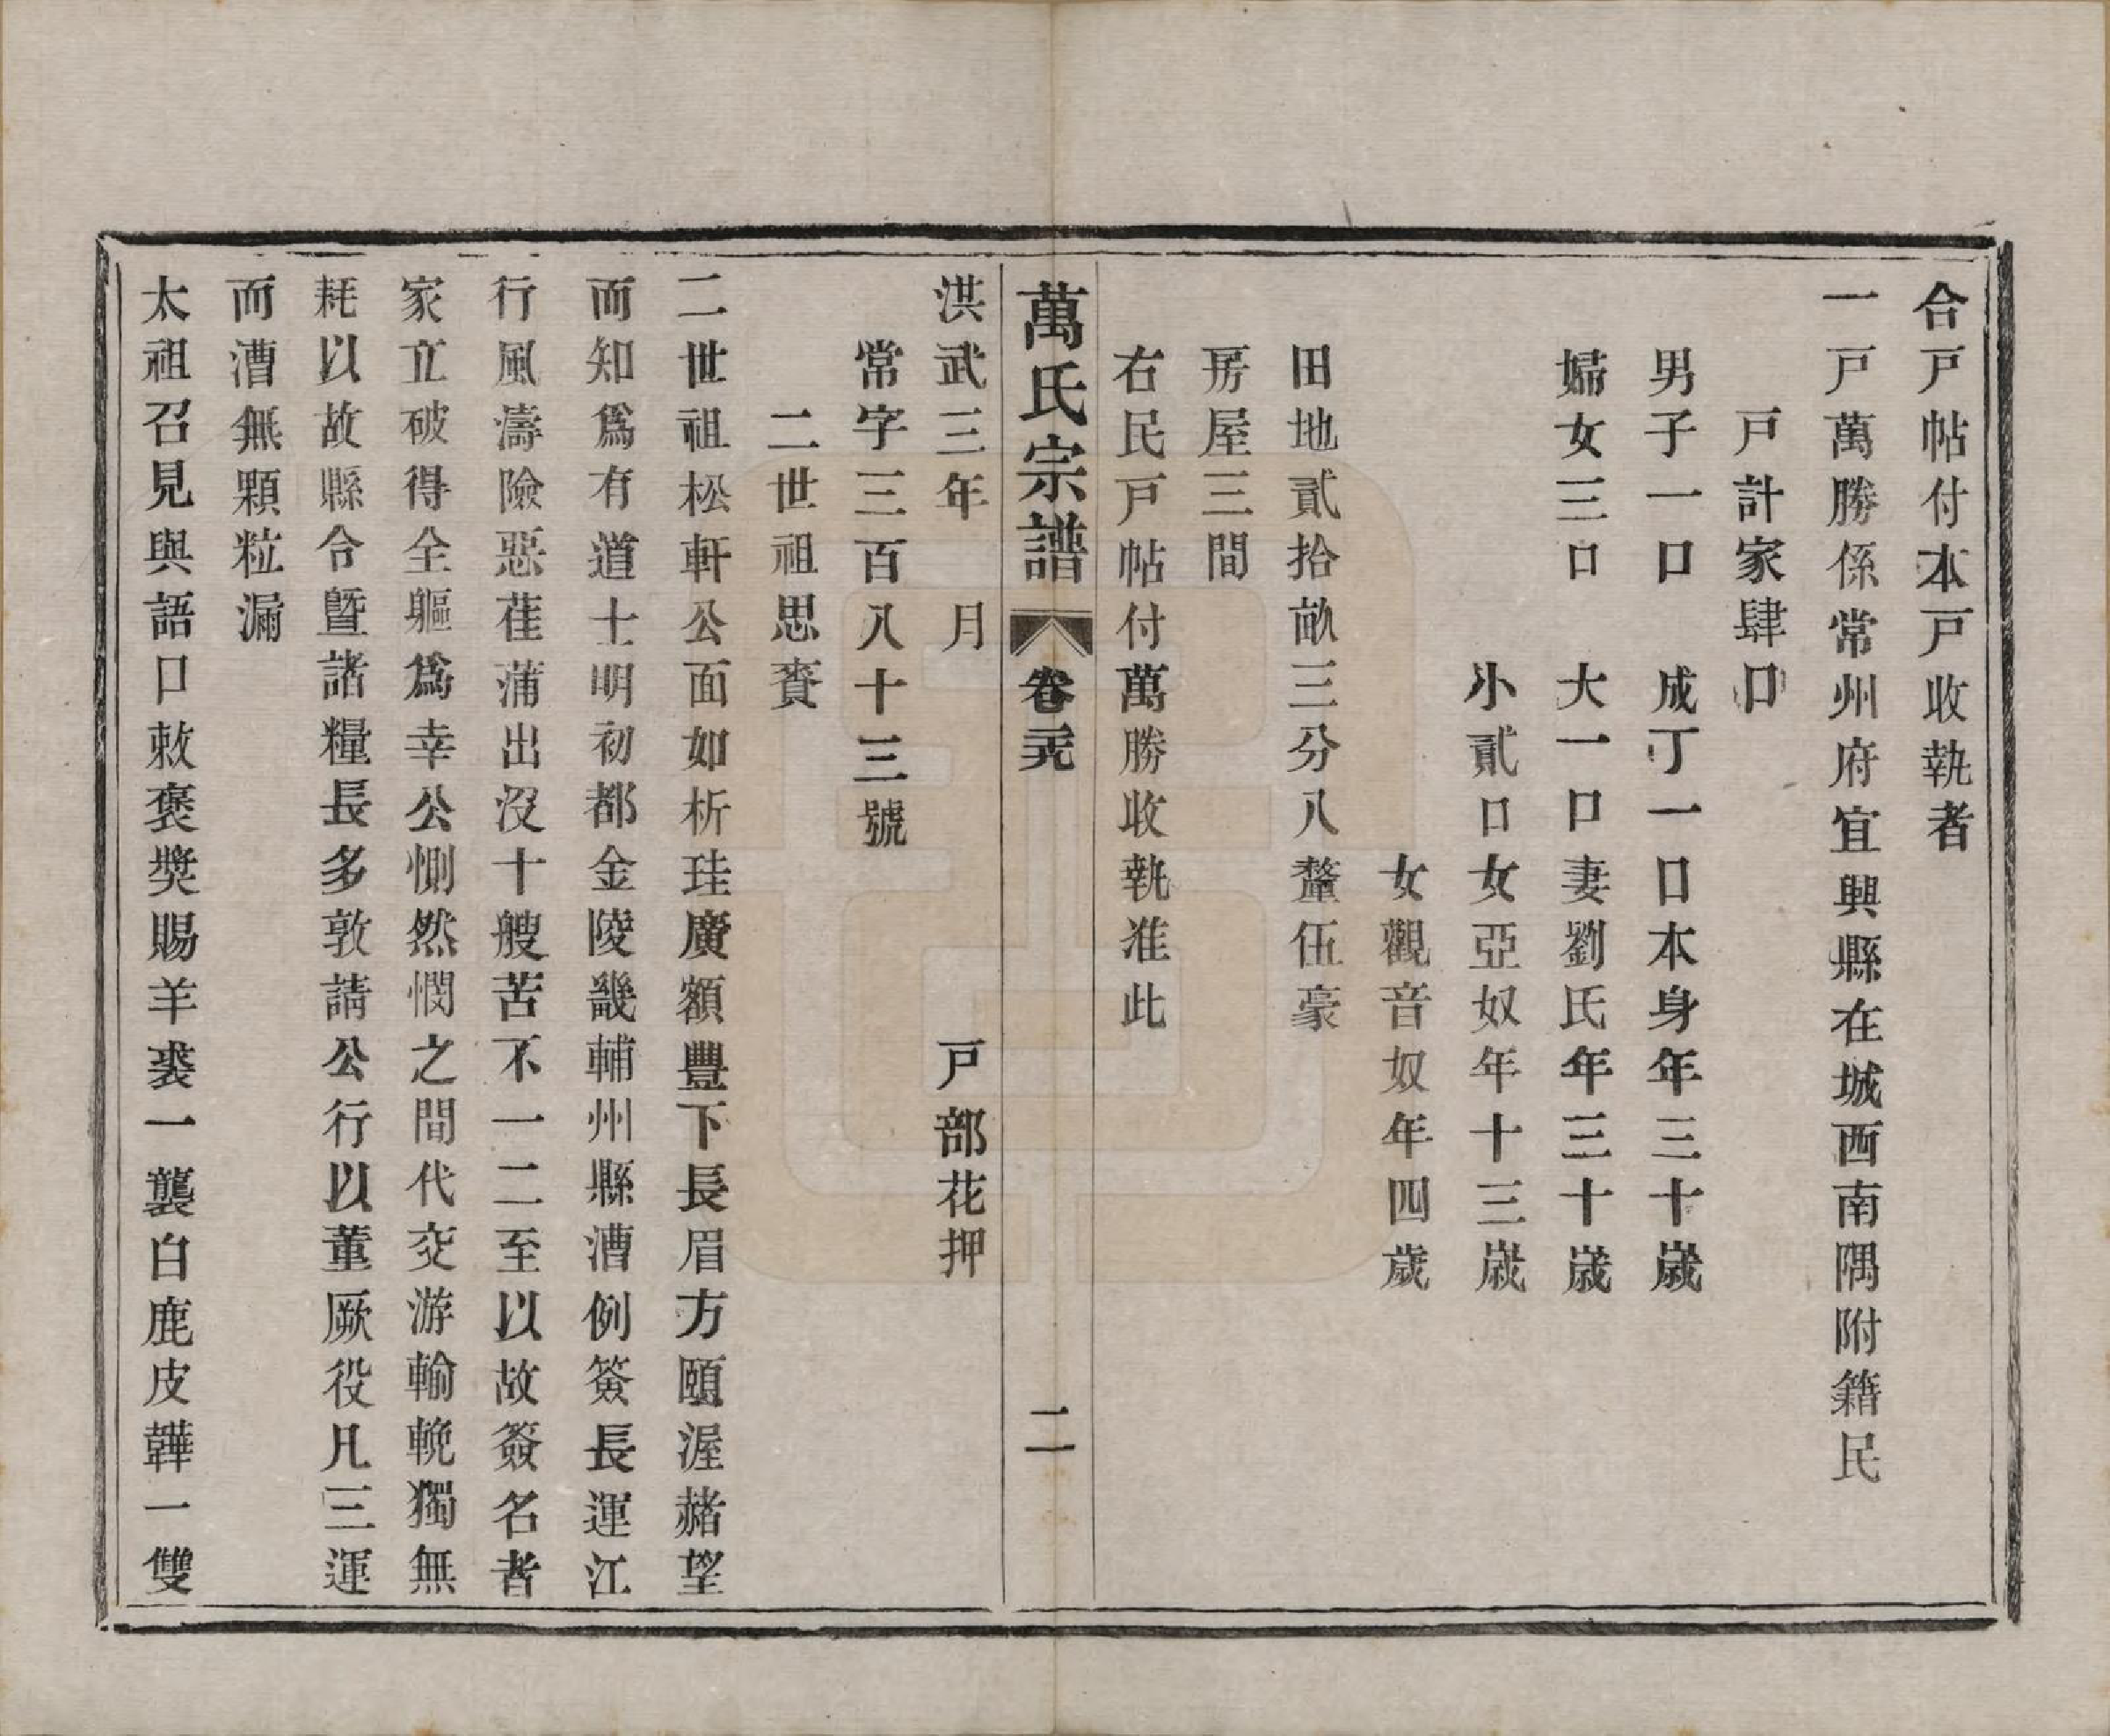 合戸帖付本戸收執者
一戸萬勝係常州府宜興縣在城西南隅附籍民
戸計家肆口
男子一口　成丁一口本身年三十歲
婦女三口　大一口妻劉氏年三十歲
小貳口女亞奴年十三歲
女觀音奴年四歲
田地貳拾畝三分八釐伍豪
房屋三間
右民戸帖付萬勝收執准此
萬氏宗譜　卷三十九　二
洪武三年　月　戸部花押
常字三百八十三號
二世祖思賚
二世祖松軒公面如析珪廣額豐下長眉方頤渥赭望
而知爲有道士明初都金陵畿輔州縣漕例簽長運江
行風濤險惡萑蒲出沒十艘苦不一二至以故簽名者
家立破得全軀爲幸公惻然憫之間代交游輸輓獨無
耗以故縣令暨諸糧長多敦請公行以董厥役凡三運
而漕無顆粒漏
太祖召見與語口敕褒獎賜羊裘一襲白鹿皮韡一雙